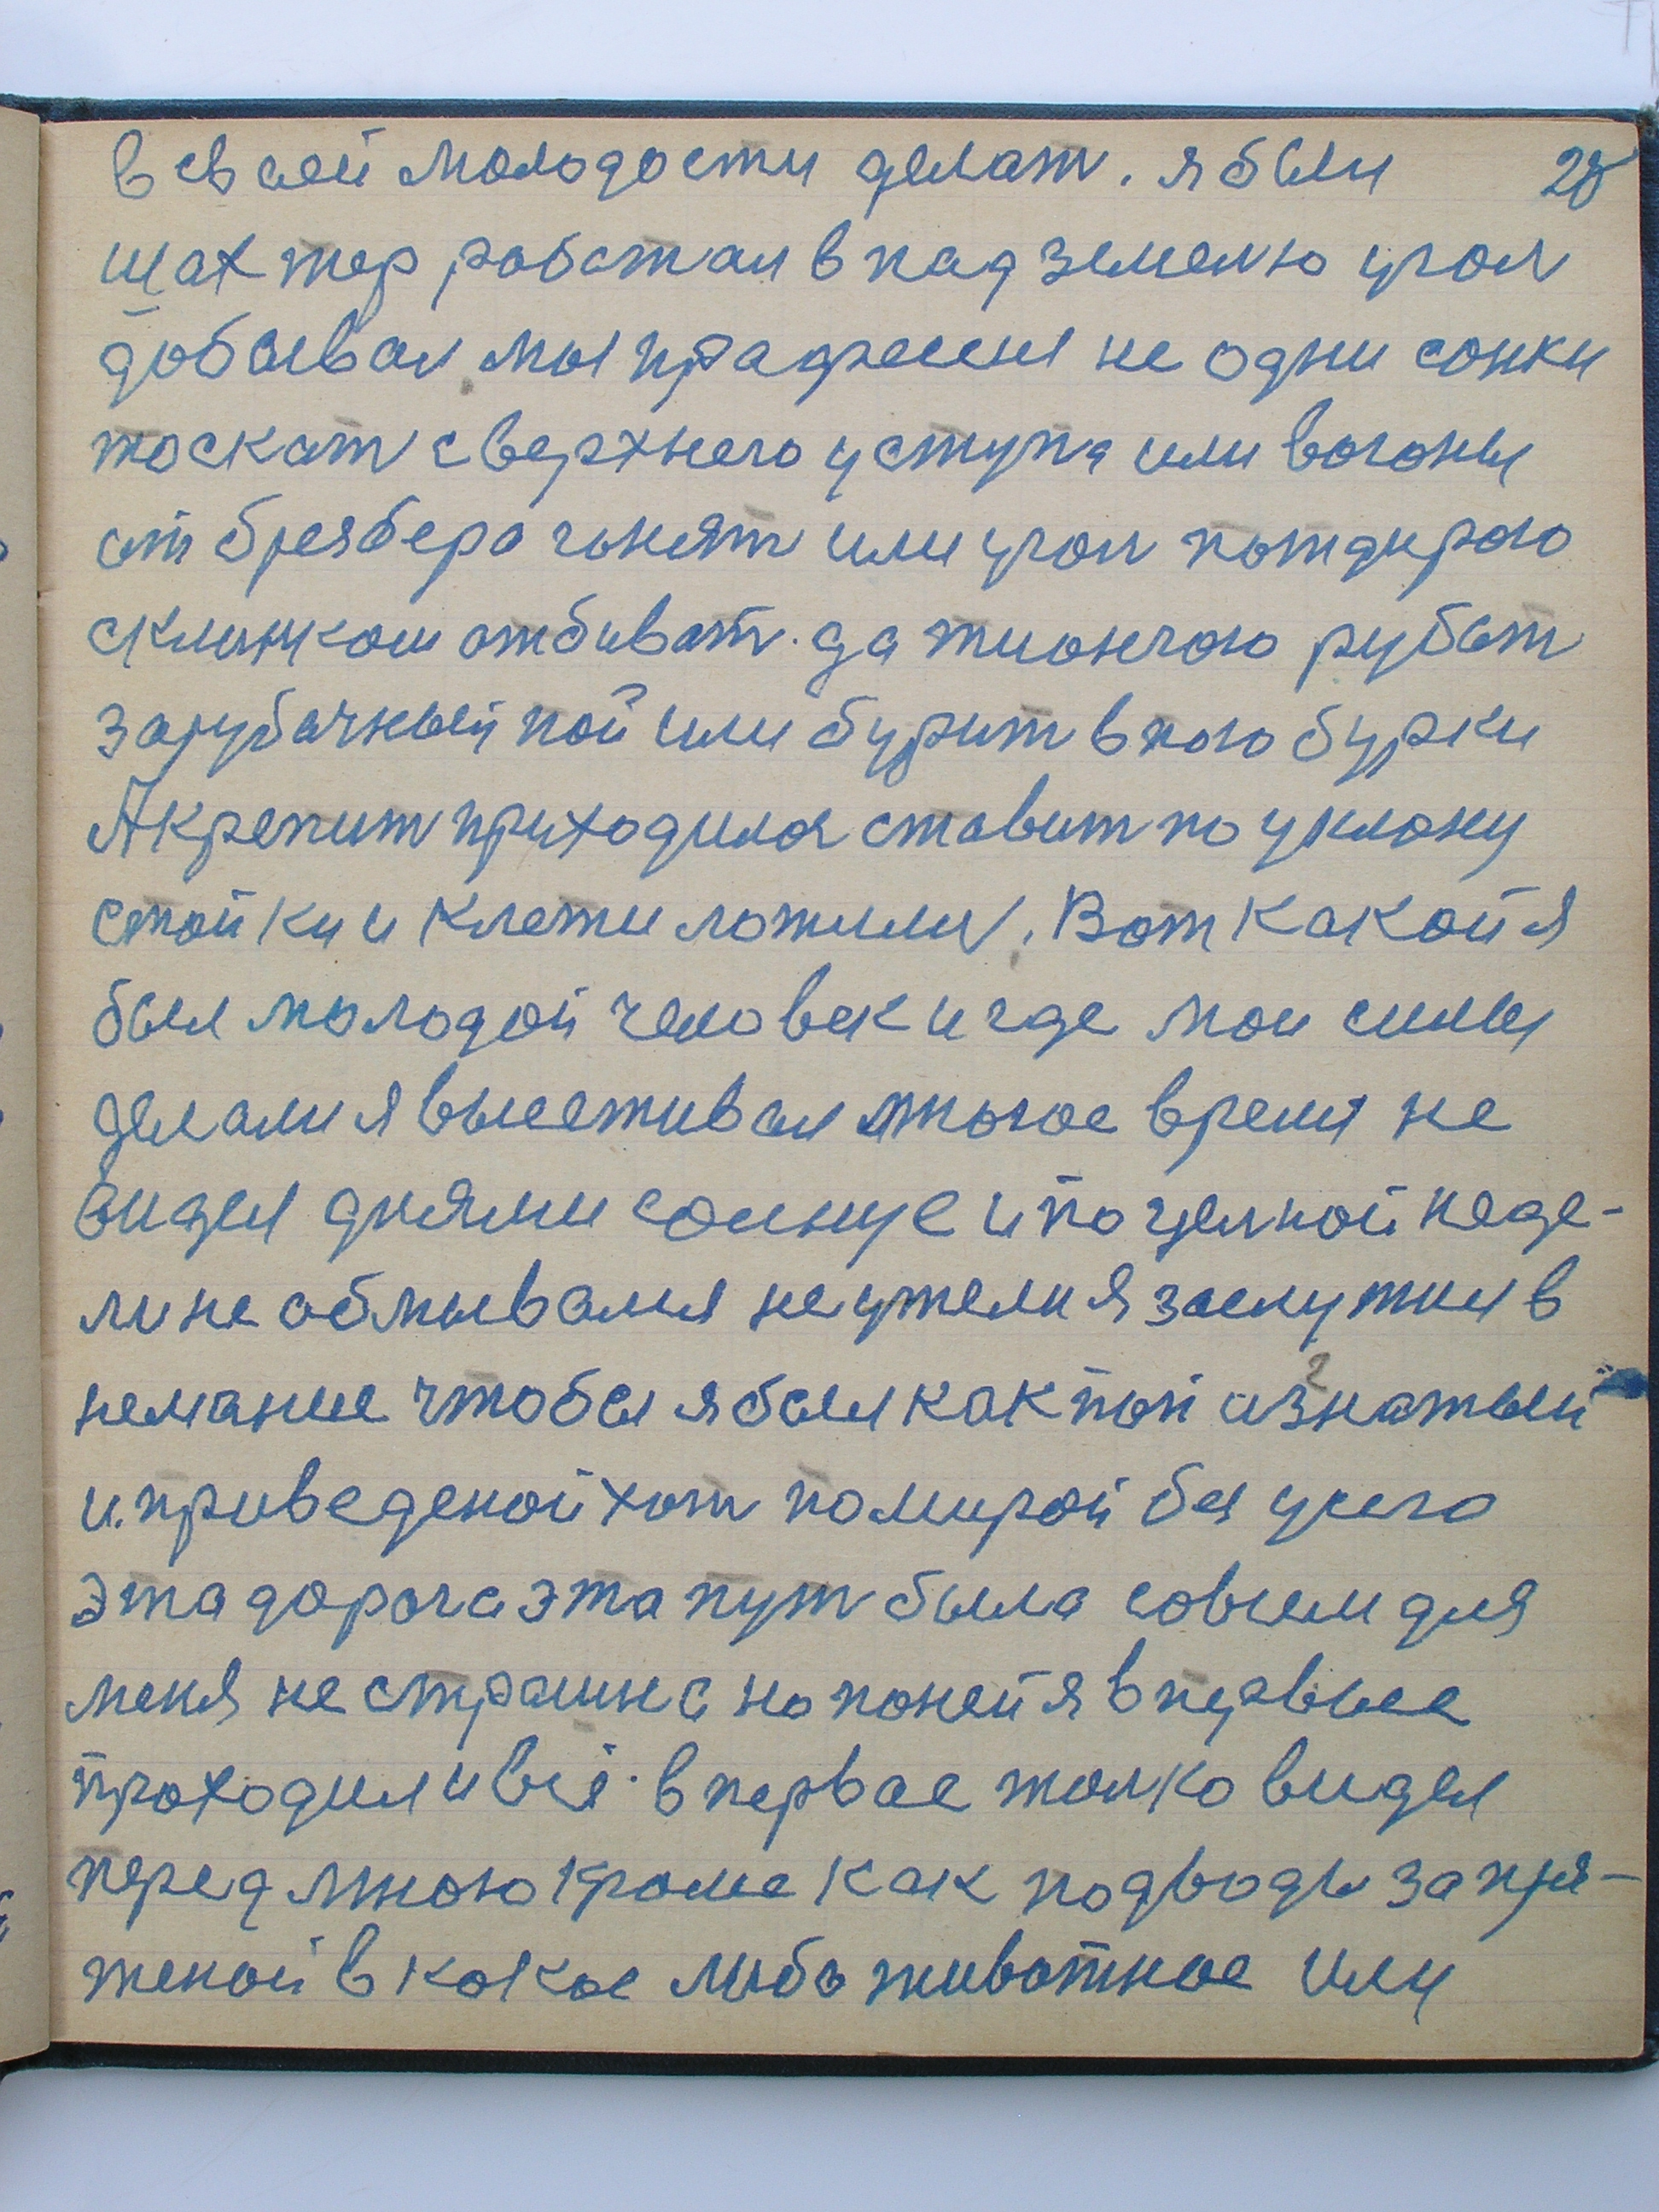 в своей молодости делат. я были 28
шахтер работал в падземелю угол
добывал, мы прадрееня не одни сонки
тоскат с верхнего уступа или вогоны
от бремсбера гонят или угол
склинком отбиват. да тионгою рубат
зарубачный пой или бурит в ною бурки
А крепит приходилос ставит по уклону
стойки и клети ложили. Вот какой я
был молодой человек и где мои силы
делалия высеживал многое время не
видел днями сонце и по целной неде-
ли не обмывался неужели я заслужил в
немание чтобы я был как той изнатый
и приведеной хот помирой бы у него
эта дорога эта пут была совсем для
меня не страшна но поней я впервые
проходил и всё. впервое толко видел
перед мною кроме как подводы запря-
женой в какое либо животное или